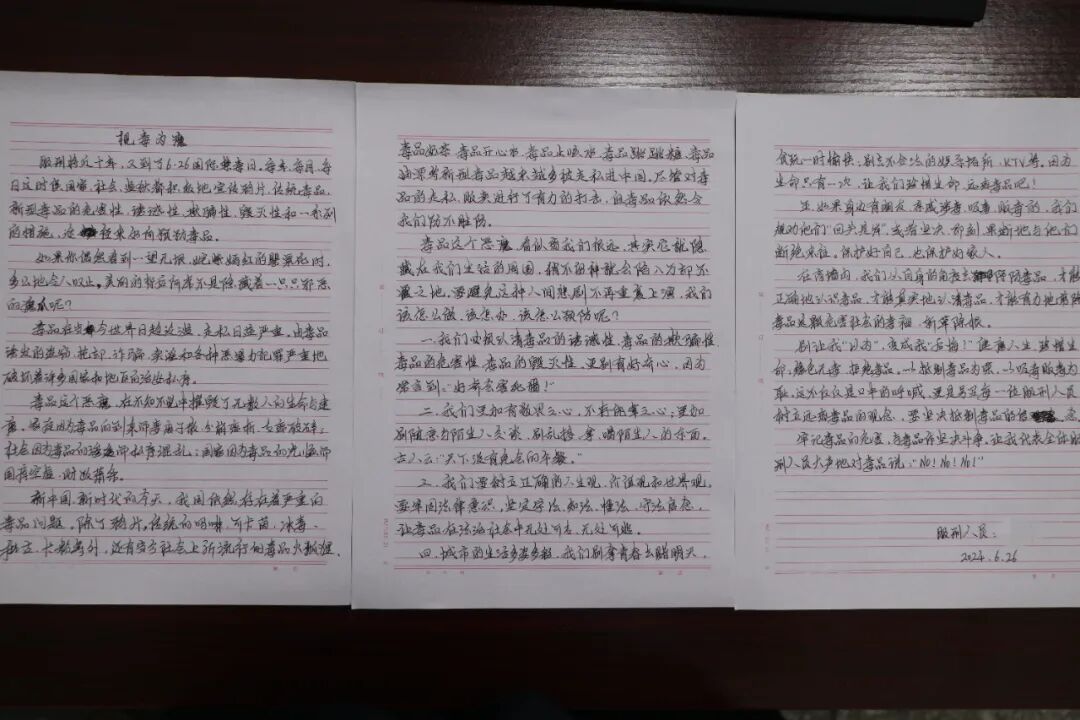 视毒为魔
服刑将近十年，又到了6.26国际禁毒日。每年、每月、每
日这时候国家、社会、监狱都积极地宣传鸦片、传统毒品、
新型毒品的危害性、诱惑性、欺骗性、毁灭性和一系列
的措施，应 和如何预防毒品。
如果你偶然看到一望无垠、姹紫嫣红的罂粟花时，
多么地令人叹止。美丽的背后何尝不是隐藏着一只只邪恶
的 呢？
毒品在当今世界日趋泛滥，走私日益严重。由毒品
诱发的盗窃、抢劫、诈骗、卖淫和各种恶暴力犯罪严重地
破坏着许多国家和地区的治安秩序。
毒品这个恶魔，在不知不觉中摧毁了无数人的生命与健
康。家庭因为毒品的到来而妻离子散、分崩离析、支离破碎；
社会因为毒品的 而秩序混乱；国家因为毒品的 而
国库空虚、财政
新中国，新时代的今天，我国依然存在着严重的
毒品问题。除了鸦片、传统的吗啡、可卡因、冰毒、
、大麻等外，还有当今社会上所流行的毒品火狐狸、
毒品奶茶、毒品开心水、毒品止咳水、毒品跳跳糖、毒品
油漆等新型毒品越来越多被走私进中国。尽管对毒
品的走私、贩卖进行了有力的打击，但毒品依然令
我们防不胜防。
毒品这个恶魔，看似离我们很远，其实它就隐
藏在我们生活的周围，稍不留神就会陷入万劫不
覆之地。要避免这种人间悲剧不再重复上演，我们
该怎么做、该怎办、该怎么预防呢？
一、我们要认清毒品的诱惑性、毒品的欺骗性、
毒品的危害性、毒品的毁灭性。更别有好奇心，因为
常言到：“好奇害死猫！”
二、我们要加有敬畏之心，不存侥幸之心；更加
别随意与陌生人交谈，别乱接、拿、喝陌生人的东西。
古人云：“天下没有免费的午餐。”
三、我们要树立正确的人生观、价值观和世界观。
要牢固法律意识，坚定学法、知法、懂法、守法信念，
让毒品在法治社会中无处可去、无处可逃。
四、城市的生活多姿多彩，我们别拿青春去赌明天，
贪玩一时愉快，别去不合法的娱乐场所、KTV等。因为
生命只有一次，让我们珍惜生命，远离毒品吧！
五、如果身边有朋友、亲戚涉毒、吸毒、贩毒的，我们
规劝他们“回头是岸”或者坚决、即刻果断地与他们
断绝来往。保护好自己，也保护好家人。
在高墙内，我们从自身的角度去 防毒品，才能
正确地认识毒品，才能真实地认清毒品，才能有力地
毒品是颗危害社会的毒瘤，斩草除根。
别让我“以为”，变成我“后悔！”健康人生，珍惜生
命，绿色无毒，拒绝毒品。以抵制毒品为荣，以吸毒贩毒为
耻。这不仅仅是口中的呼喊，更是乃至每一位服刑人员
树立远离毒品的观念，要坚决抵制毒品的
牢记毒品的危害，与毒品作坚决斗争。让我代表全体服
刑人员大声地对毒品说：“No！No！No！”
服刑人员：
2024.6.26